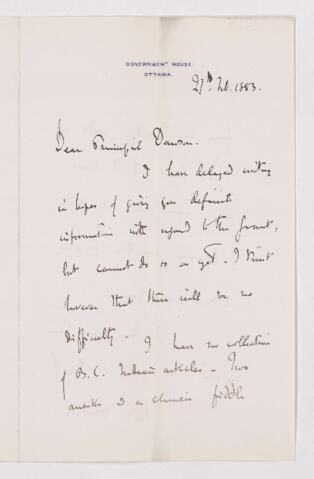 GOVERNMENT HOUSE
OTTAWA.
27th Feb. 1883.
Dear Principal Dawson.
I have delayed writing
in hopes of giving you definite
information with regard to the Grant,
but cannot do so as yet. I trust
however that there will be no
difficulty - I have no collection
of B.C. Indian articles - Two
masks & a chinese fiddle